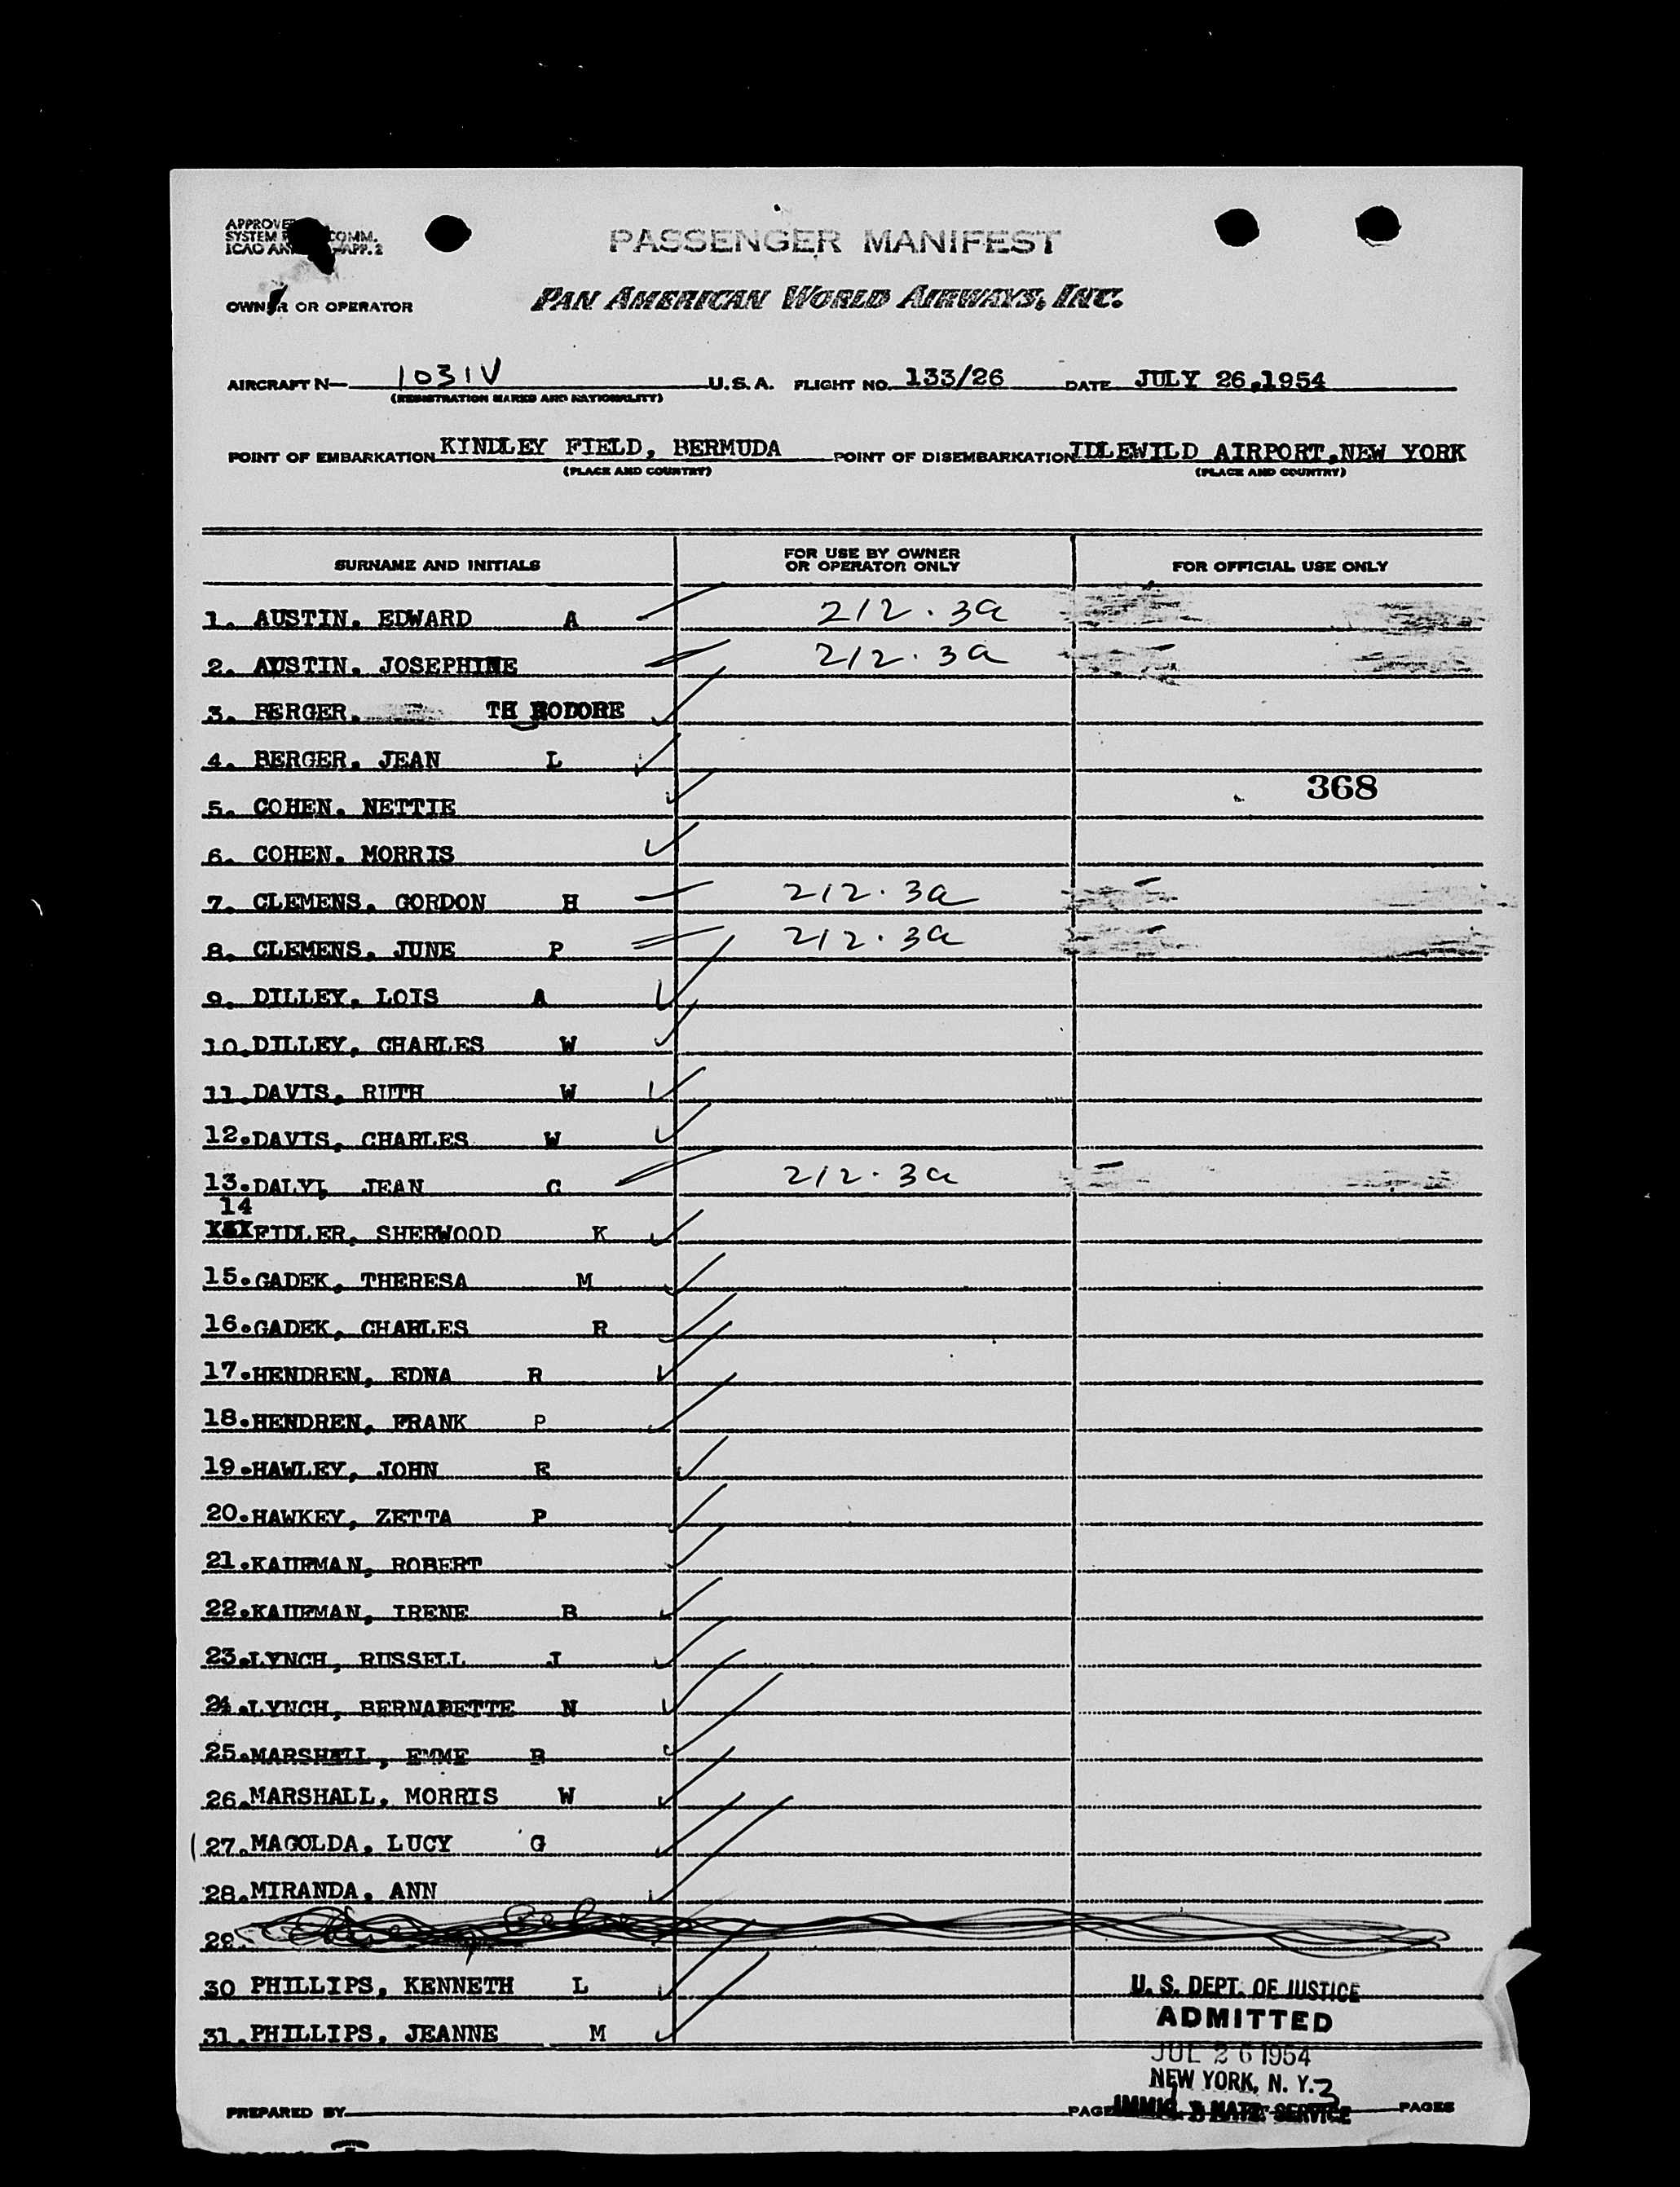 APPROVE
SYSTEM COMM.
ICAO AN APP. 2
PASSENGER MANIFEST
OWNER OR OPERATOR PAN AMERICAN WORLD AIRWAYS, INC.
AIRCRAFT N— 1031V U.S.A. FLIGHT NO. 133/26 DATE JULY 26,1954
(REGISTRATION MARKS AND NATIONALITY)
POINT OF EMBARKATION KINDLEY FIELD, BERMUDA POINT OF DISEMBARKATION IDLEWILD AIRPORT,NEW YORK
(PLACE AND COUNTRY) (PLACE AND COUNTRY)
SURNAME AND INITIALS FOR USE BY OWNER OR OPERATOR ONLY FOR OFFICIAL USE ONLY
1. AUSTIN, EDWARD A 212.3a
2. AUSTIN, JOSEPHINE 212.3a
3. BERGER, THEODORE
4. BERGER, JEAN L
368
5. COHEN, NETTIE
6. COHEN, MORRIS
7. CLEMENS, GORDON H 212.3a
8. CLEMENS, JUNE P 212.3a
9. DILLEY, LOIS A
10.DILLEY, CHARLES W
11.DAVIS, RUTH W
12.DAVIS, CHARLES W
13.DALYL JEAN C 212.3a
14
FIDLER, SHERWOOD K
15.GADEK, THERESA M
16.GADEK, CHARLES R
17.HENDREN, EDNA R
18.HENDREN, FRANK P
19.HAWLEY, JOHN E
20.HAWKEY, ZETTA P
21.KAUFMAN, ROBERT
22.KAUFMAN, IRENE B
23.LYNCH, RUSSELL J
24.LYNCH, BERNADETTE N
25.MARSHALL, EMME B
26.MARSHALL, MORRIS W
27.MAGOLDA, LUCY G
28.MIRANDA, ANN
29.
30 PHILLIPS, KENNETH L
U. S. DEPT. OF JUSTICE
ADMITTED
31.PHILLIPS, JEANNE M
JUL 26 1954
NEW YORK, N. Y.
PREPARED BY PAGE 1 3 PAGES
IMMIG. & NATZ. SERVICE